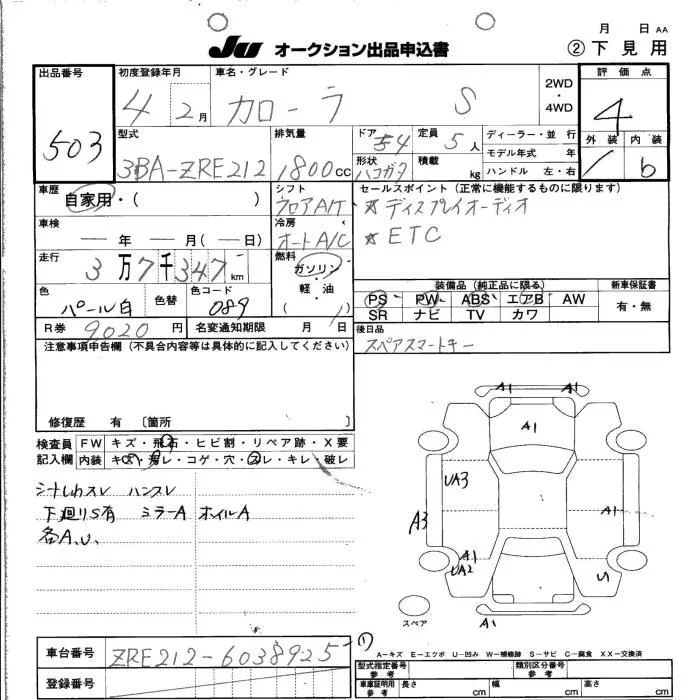 月 日 AA
JU オークション出品申込書 ② 下見用
出品番号 503
初度登録年月 4 2月
車名・グレード カローラ S
2WD・4WD
評価点 4
外装 内装 b
型式 3BA-ZRE212
排気量 1800cc
ドア 4
形状 ハコガタ
定員 5人
積載 kg
ディーラー・並行
モデル年式 年
ハンドル 左・右
車歴 自家用・( )
シフト フロアA/T
冷房 オートA/C
燃料 ガソリン・軽・油 ( )
セールスポイント (正常に機能するものに限ります)
☆ディスプレイオーディオ
☆ETC
車検 ― 年 ― 月(―日)
走行 3万7千347km
色 パール白 色替 色コード 089
R券 9020円 名変通知期限 月 日
装備品 (純正品に限る)
PS PW ABS エアB AW
SR ナビ TV カワ
新車保証書 有・無
後日品
スペアスマートキー
注意事項申告欄 (不具合内容等は具体的に記入してください)
修復歴 有 〔箇所 〕
検査員記入欄
FW キズ・飛石・ヒビ割・リペア跡・X要
内装 キズ・汚レ・コゲ・穴・スレ・キレ・破レ
シートしわスレ ハンスレ
下廻りS有 ミラーA ホイルA
各A.U.
A1 A1
A1
UA3
A3
A1
A1
UA2
A1
U
A1
スペア
A-キズ E-エクボ U-凹み W-補修跡 S-サビ C-腐食 XX-交換済
車台番号 ZRE212-6038925
登録番号
(1)
型式指定番号 参考
類別区分番号 参考
車庫証明用 参考 長さ cm 幅 cm 高さ cm